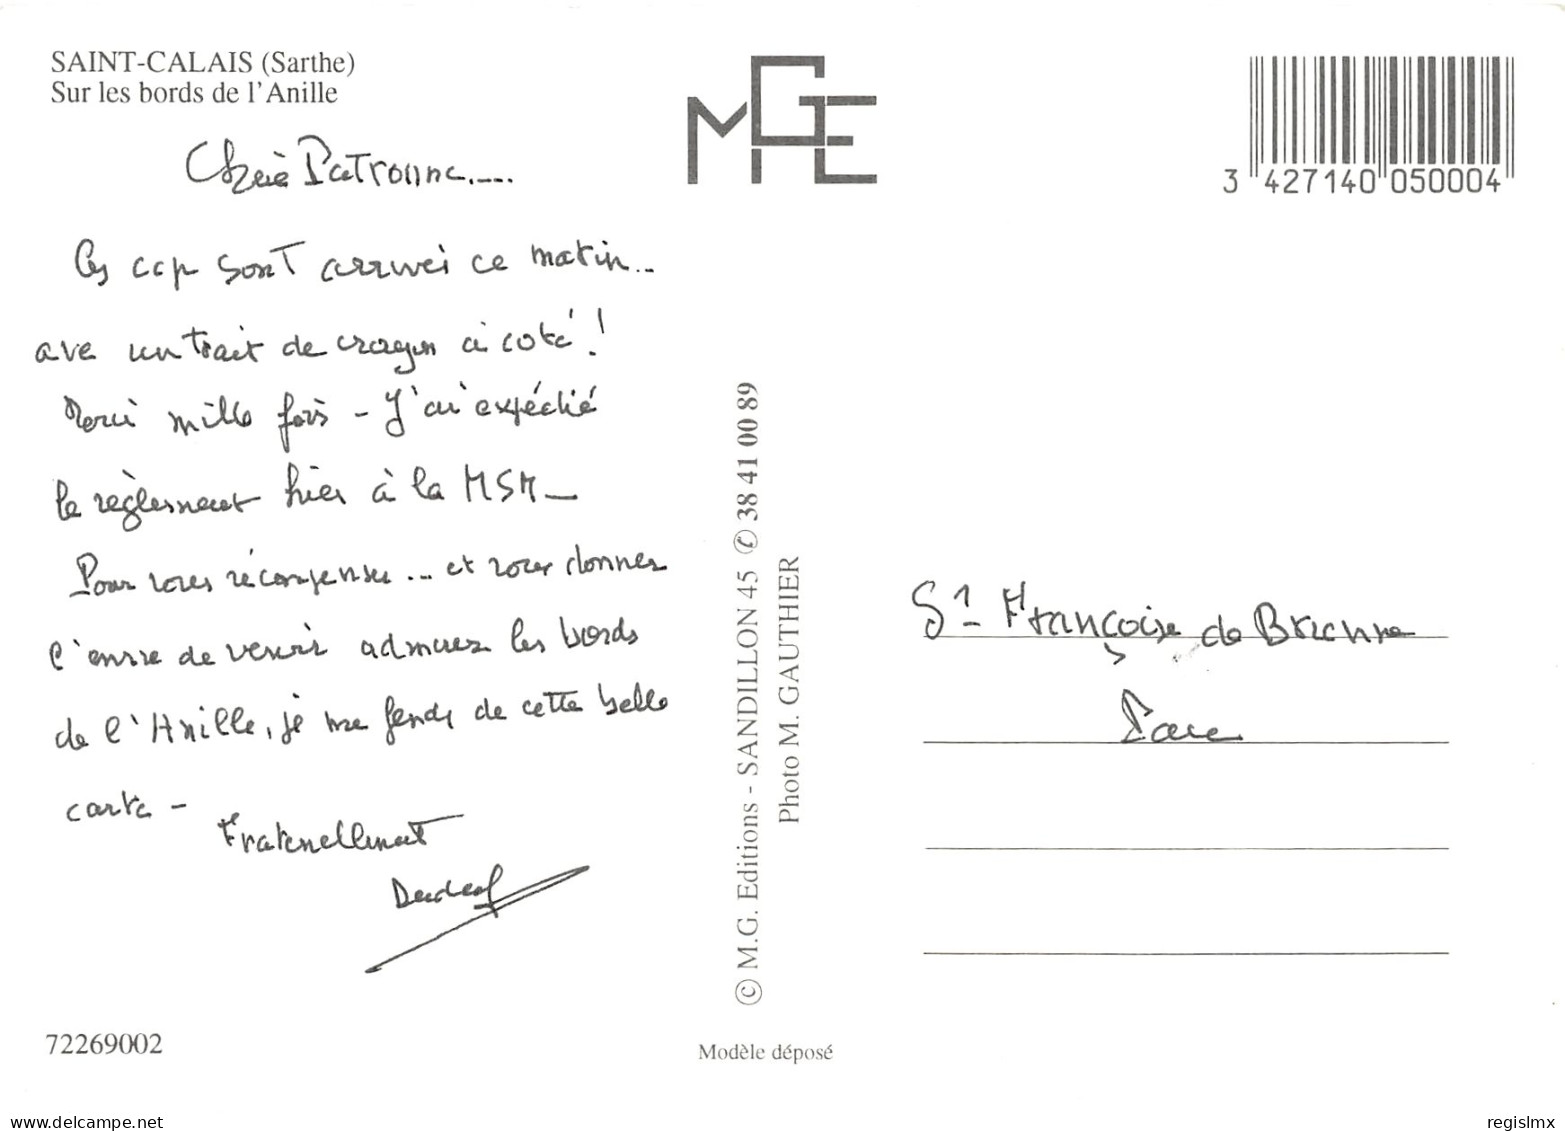 SAINT-CALAIS (Sarthe)
Sur les bords de l'Anille
MGE
3 427140 050004
Chère Patronne.....
Ces ccp sont arrivés ce matin..
ave un trait de crayon à coté !
Merci mille fois - J'ai expédié
le règlement hier à la MSM -
Pour vous récompenser... et vous donner
l'envie de venir admirer les bords
de l'Anille, je me fends de cette belle
carte -
Fraternellement
© M.G. Editions - SANDILLON 45 ✆ 38 41 00 89
Photo M. GAUTHIER
Sr Françoise de Brienne
72269002
Modèle déposé
delcampe.net
regislmx